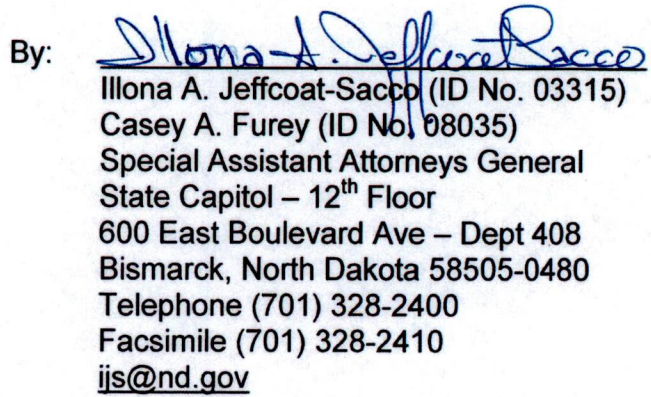 By: Illona A. Jeffcoat-Sacco
Illona A. Jeffcoat-Sacco (ID No. 03315)
Casey A. Furey (ID No. 08035)
Special Assistant Attorneys General
State Capitol – 12th Floor
600 East Boulevard Ave – Dept 408
Bismarck, North Dakota 58505-0480
Telephone (701) 328-2400
Facsimile (701) 328-2410
ijs@nd.gov